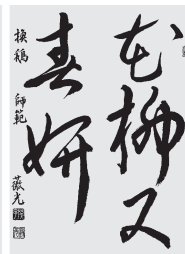 花柳又
春妍
換鵝 師範 薇光